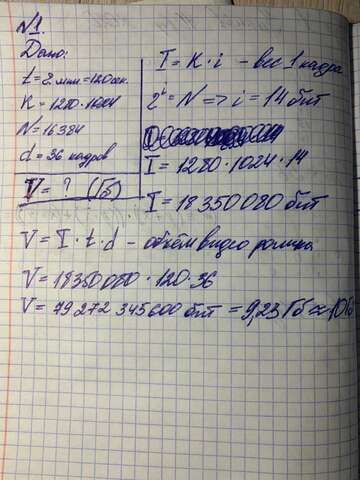 №1.
Дано:
t = 2 мин. = 120 сек.
K = 1280 · 1024
N = 16384
d = 36 кадров
V = ? (Гб)
I = K · i – вес 1 кадра
2^i = N => i = 14 бит
I = 1280 · 1024 · 14
I = 18 350 080 бит
V = I · t · d – объём видео ролика
V = 18350080 · 120 · 36
V = 79 272 345 600 бит = 9,23 Гб ≈ 10 Гб